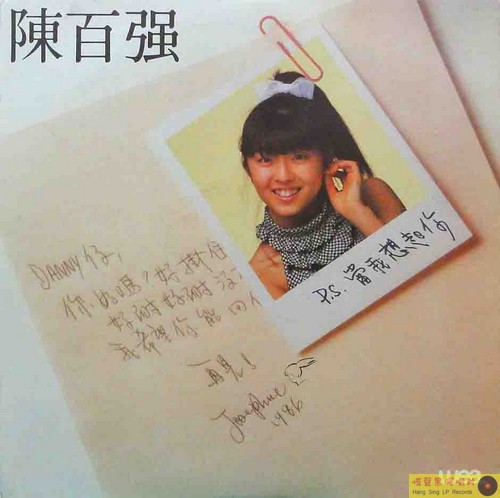 陳百强
DANNY仔,
你好嗎?好掛住
好耐好耐沒
我希望你能回
再見!
Josephine
1986
P.S. 當我想起你
wea
恒聲黑膠唱片
Hang Sing LP Records